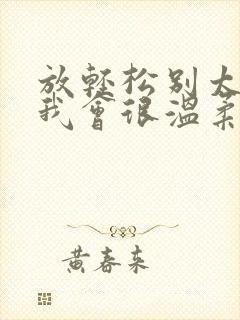 放轻松别太
我會很温柔
黄春来